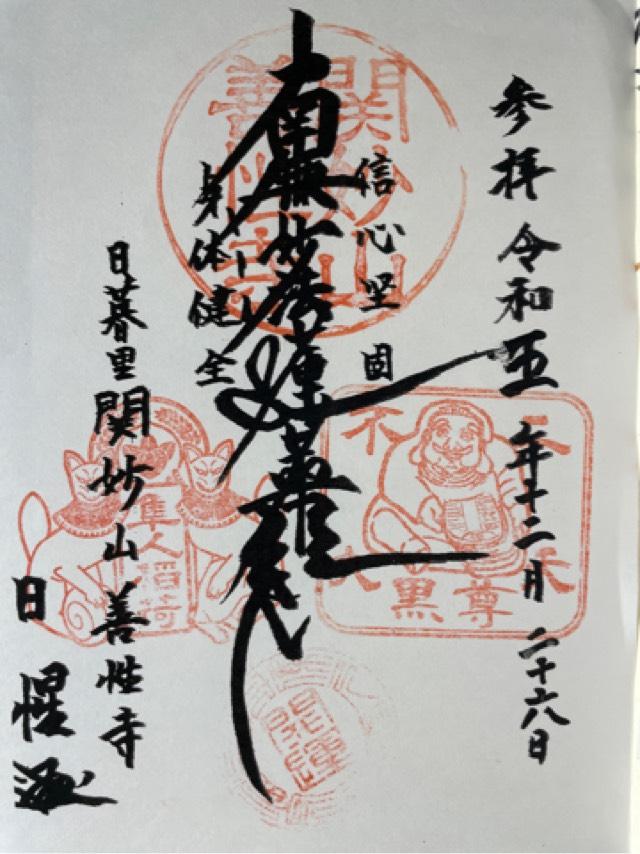 参拝 令和五年十二月二十六日
信心堅固
南無妙法蓮華経
身体健全
日暮里 関妙山 善性寺
日惺
関妙山
善性寺
大黒尊天
隼人稲荷
開運